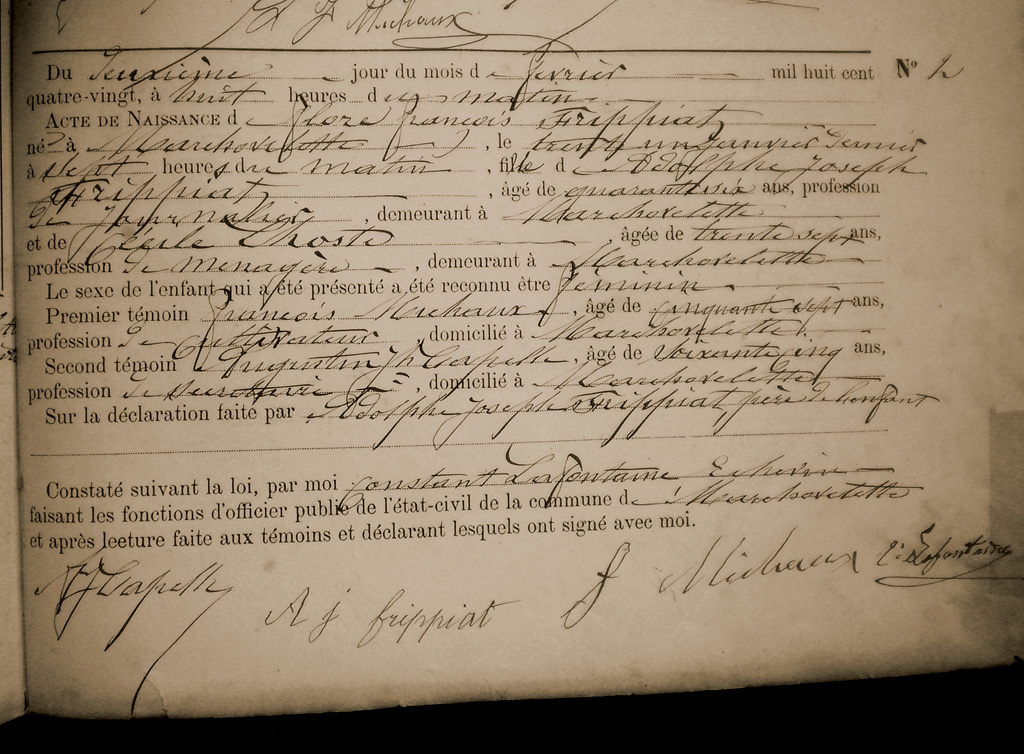 J Michaux
Du deuxième jour du mois de février mil huit cent N° 2
quatre-vingt, à huit heures du matin
ACTE DE NAISSANCE de Flore françois Frippiat
né à Marchovelette , le trente un janvier dernier
à Sept heures du matin , fille d' Adolphe Joseph
Frippiat , âgé de quarante six ans, profession
de Journalier , demeurant à Marchovelette
et de Cécile Lhoste , âgée de trente sept ans,
profession de menagère , demeurant à Marchovelette
Le sexe de l'enfant qui a été présenté a été reconnu être féminin
Premier témoin françois Michaux , âgé de cinquante sept ans,
profession de Cultivateur , domicilié à Marchovelette
Second témoin Augustin Jh Capelle , âgé de soixante cinq ans,
profession de Secrétaire , domicilié à Marchovelette
Sur la déclaration faite par Adolphe Joseph Frippiat père de l'enfant
Constaté suivant la loi, par moi Constant Lafontaine Echevin
faisant les fonctions d'officier public de l'état-civil de la commune de Marchovelette
et après leeture faite aux témoins et déclarant lesquels ont signé avec moi.
Capelle A j frippiat J Michaux C. Lafontaine